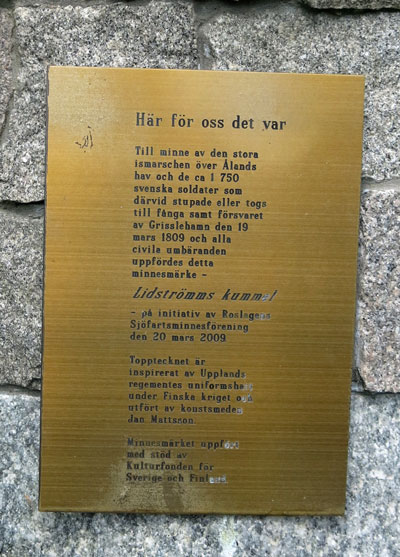 Här för oss det var
Till minne av den stora
ismarschen över Ålands
hav och de ca 1 750
svenska soldater som
därvid stupade eller togs
till fånga samt försvaret
av Grisslehamn den 19
mars 1809 och alla
civila umbäranden
uppfördes detta
minnesmärke -
Lidströmms kummel
- på initiativ av Roslagens
Sjöfartsminnesförening
den 20 mars 2009
Topptecknet är
inspirerat av Upplands
regementes uniformshatt
under Finska kriget och
utfört av konstsmeden
Jan Mattsson.
Minnesmärket uppfört
med stöd av
Kulturfonden för
Sverige och Finland.